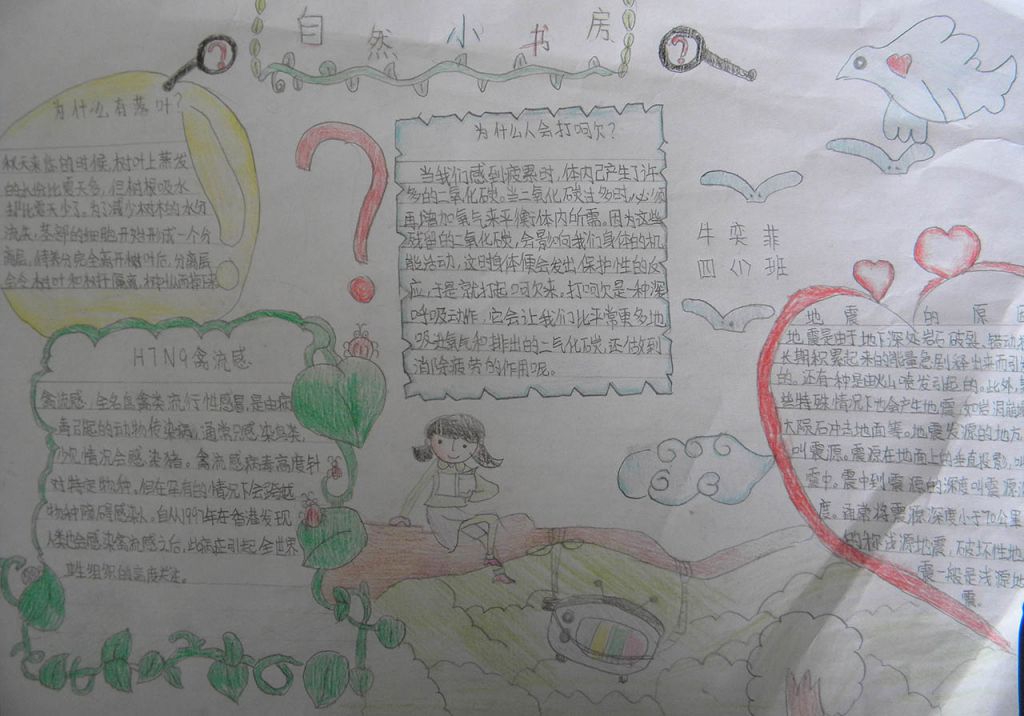 自然小书房
?
?
为什么有落叶?
秋天来临的时候,树叶上蒸发
的水份比夏天多,但树根吸水
却比夏天少了。为了减少树木的水份
流失,茎部的细胞开始形成一个分
离层,待养分完全离开树叶后,分离层
会令树叶和树杆隔离,树叶从而掉下来
?
为什么人会打呵欠?
当我们感到疲累时,体内已产生了许
多的二氧化碳。当二氧化碳过多时,必须
再增加氧气来平衡体内所需。因为这些
残留的二氧化碳,会影响我们身体的机
能活动,这时身体便会发出保护性的反
应,于是就打起呵欠来。打呵欠是一种深
呼吸动作,它会让我们比平常更多地
吸进氧气和排出的二氧化碳,还做到
消除疲劳的作用呢。
牛奕菲
四(八)班
H7N9禽流感
禽流感,全名鸟禽类流行性感冒,是由病
毒引起的动物传染病,通常只感染鸟类,
少见情况会感染猪。禽流感病毒高度针
对特定物种,但在罕有的情况下会跨越
物种障碍感染人。自从1997年在香港发现
人类也会感染禽流感之后,此病症引起全世界
卫生组织的高度关注。
地震的原因
地震是由于地下深处岩石破裂、错动
长期积累起来的能量急剧释出来而引
的。还有一种是由火山喷发引起的。此外,
些特殊情况下也会产生地震,如岩洞崩
大陨石冲击地面等。地震发源的地方,
叫震源。震源在地面上的垂直投影,叫
震中。震中到震源的深度叫震源深
度。通常将震源深度小于70公里
的称浅源地震,破坏性地
震一般是浅源地
震。